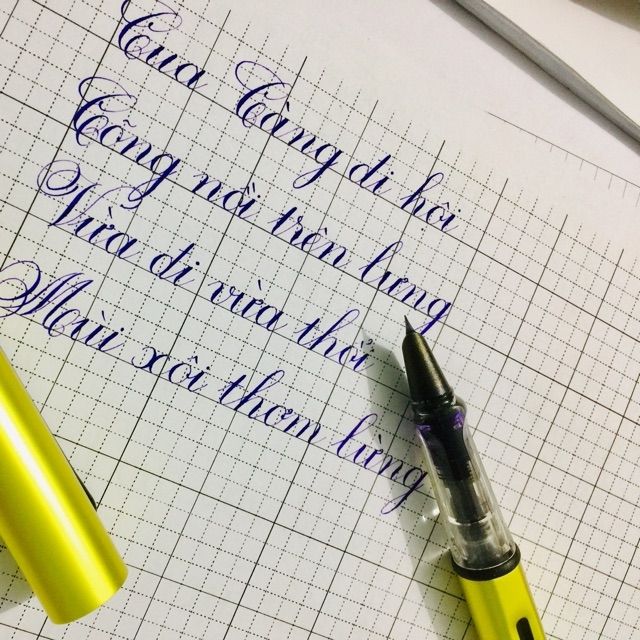 Cua Càng đi hội
Cõng nồi trên lưng
Vừa đi vừa thổi
Mùi xôi thơm lừng